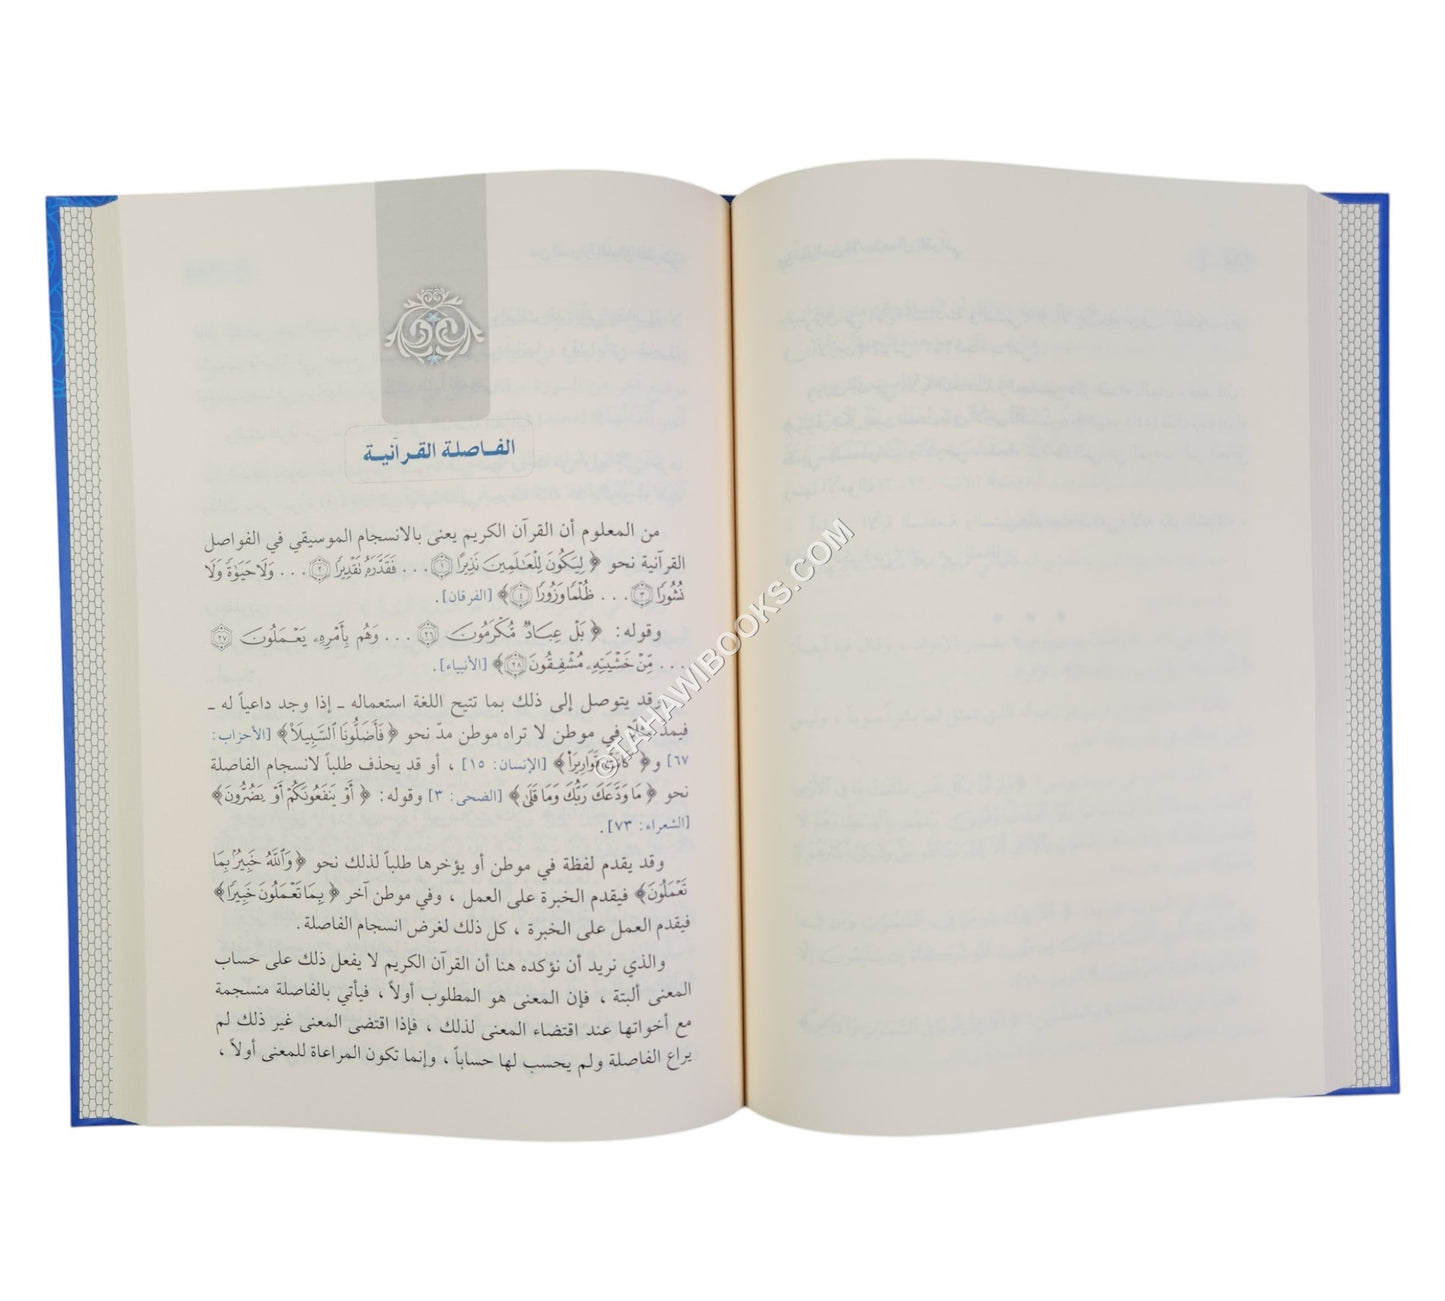 الفاصلة القرآنية
من المعلوم أن القرآن الكريم يعنى بالانسجام الموسيقي في الفواصل
القرآنية نحو ﴿ لِيَكُونَ لِلْعَٰلَمِينَ نَذِيرًا ١ ... فَقَدَّرَهُۥ تَقْدِيرًا ٢ ... وَلَا حَيَوٰةً وَلَا
نُشُورًا ٣ ... ظُلْمًا وَزُورًا ٤ ﴾ [الفرقان] .
وقوله: ﴿ بَلْ عِبَادٌ مُّكْرَمُونَ ٢٦ ... وَهُم بِأَمْرِهِۦ يَعْمَلُونَ ٢٧
... مِّنْ خَشْيَتِهِۦ مُشْفِقُونَ ٢٨ ﴾ [الأنبياء] .
وقد يتوصل إلى ذلك بما تتيح اللغة استعماله ـ إذا وجد داعياً له ـ
فيمد مثلًا في موطن لا تراه موطن مدّ نحو ﴿ فَأَضَلُّونَا ٱلسَّبِيلَا۠ ﴾ [الأحزاب:
٦٧] و﴿ كَانَتْ قَوَارِيرَا۠ ﴾ [الإنسان: ١٥] ، أو قد يحذف طلباً لانسجام الفاصلة
نحو ﴿ مَا وَدَّعَكَ رَبُّكَ وَمَا قَلَىٰ ﴾ [الضحى: ٣] وقوله: ﴿ أَوْ يَنفَعُونَكُمْ أَوْ يَضُرُّونَ ﴾
[الشعراء: ٧٣] .
وقد يقدم لفظة في موطن أو يؤخرها طلباً لذلك نحو ﴿ وَٱللَّهُ خَبِيرٌۢ بِمَا
تَعْمَلُونَ ﴾ فيقدم الخبرة على العمل ، وفي موطن آخر ﴿ بِمَا تَعْمَلُونَ خَبِيرًا ﴾
فيقدم العمل على الخبرة ، كل ذلك لغرض انسجام الفاصلة .
والذي نريد أن نؤكده هنا أن القرآن الكريم لا يفعل ذلك على حساب
المعنى ألبتة ، فإن المعنى هو المطلوب أولاً ، فيأتي بالفاصلة منسجمة
مع أخواتها عند اقتضاء المعنى لذلك ، فإذا اقتضى المعنى غير ذلك لم
يراع الفاصلة ولم يحسب لها حساباً ، وإنما تكون المراعاة للمعنى أولاً ،
©TAHAWIBOOKS.COM